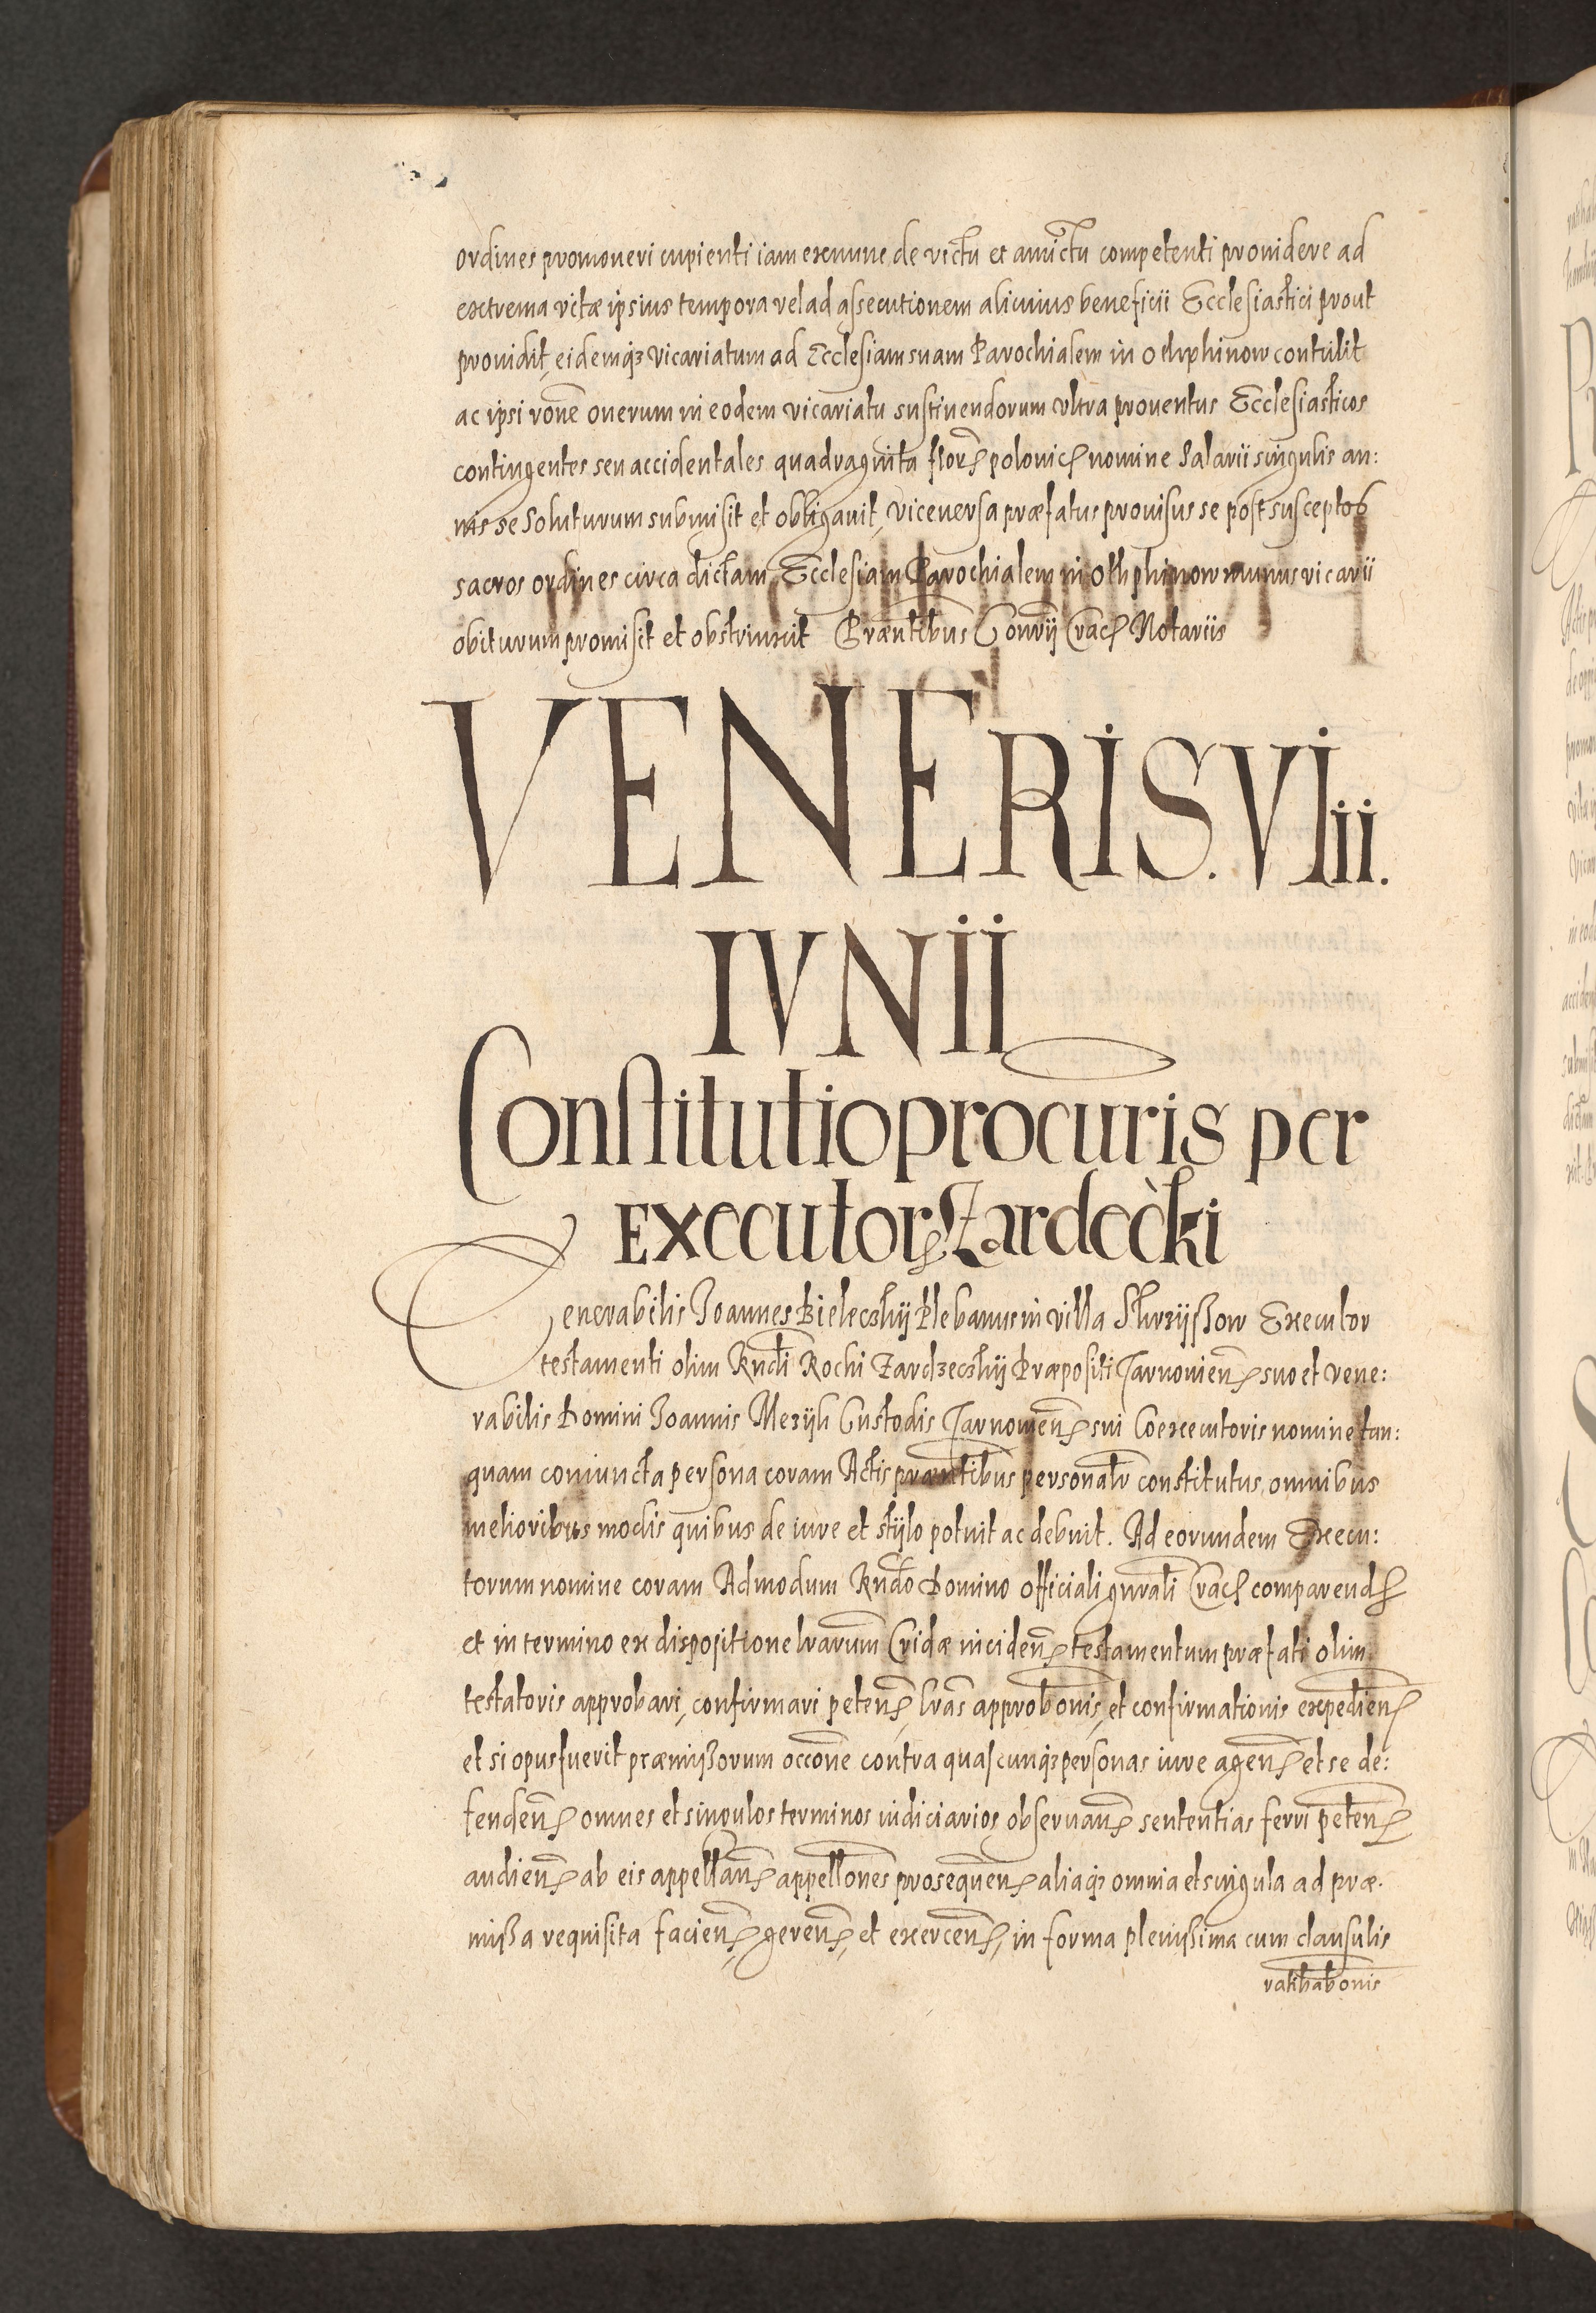 ordines promoueri cupienti iam exnunc de victu et amictu competenti prouidere ad
extrema vitæ ipsius tempora vel ad assecutionem alicuius beneficii Ecclesiastici prout
prouidit, eidemq3 vicariatum ad Ecclesiam suam Parochialem in contulit
ac ipsi rone onerum in eodem vicariatu sustinendorum vltra prouentus Ecclesiasticos
contingentes seu accidentales quadraginta flor polonic nomine Salarii singulis an:
nis se Soluturum submisit et obligauit, viceuersa præfatus prouisus se post susceptos
sacros ordines circa dictam Ecclesiam Parochialem in munus vicarii
obiturum promisit et obstrinxit Præntibus Conrij Crac Notariis
VENERIS. VIii.
IVNII
Constitutio procuris per
Executor Zardecki
Venerabilis Joannes Bieleczky Plebanus in villa Executor
testamenti olim Rndi Rochi Zardzeczky Præpositi Tarnouien suo et vene:
rabilis Domini Joannis Mezyk Custodis Tarnouien sui Coexecutoris nomine tan:
quam coniuncta persona coram Actis præntibus personalr constitutus, omnibus
melioribus modis quibus de iure et stylo potuit ac debuit. Ad eorundem Execu:
torum nomine coram Admodum Rndo Domino officiali gnrali Crac comparend
et in termino ex dispositione lrarum Cridæ inciden testamentum præfati olim
testatoris approbari, confirmari peten, lras approbonis, et confirmationis expedien
et si opus fuerit præmißorum occone contra quascunq3 personas iure agen et se de:
fenden omnes et singulos terminos iudiciarios obseruan sententias ferri peten
audien ab eis appellan appellones prosequen aliaq3 omnia et singula ad præ.
mißa requisita facien, geren, et exercen, in forma plenißima cum clausulis
ratihabonis